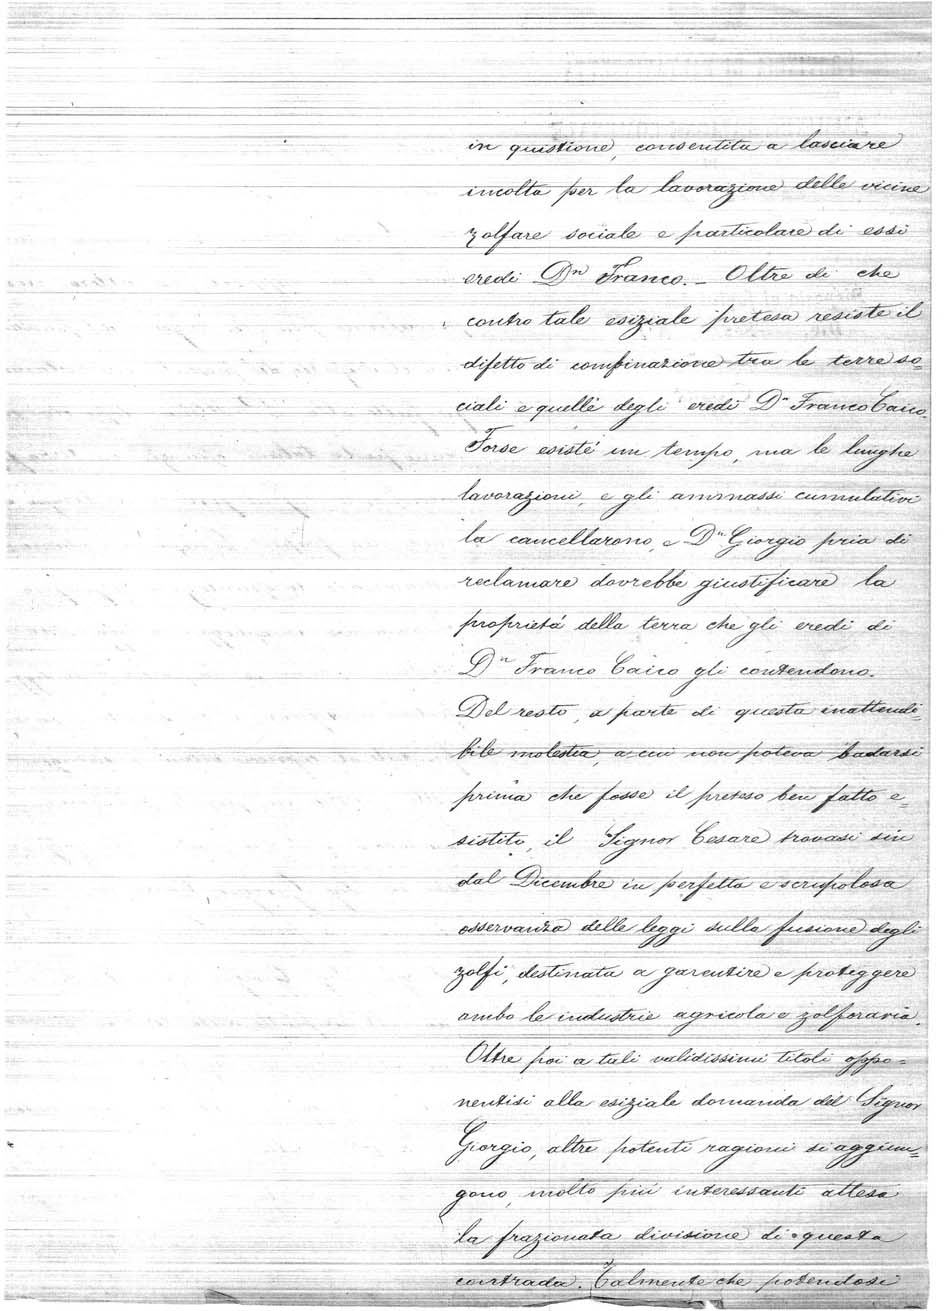 in quistione, consentita a lasciare
incolta per la lavorazione delle vicine
zolfare sociale e particolare di essi
eredi Dn Franco. – Oltre di che
contro tale esiziale pretesa resiste il
difetto di combinazione tra le terre so=
ciali e quelle degli eredi Dn Franco Caico.
Forse esisté un tempo, ma le lunghe
lavorazioni, e gli ammassi cumulativi
la cancellarono, e Dn Giorgio pria di
reclamare dovrebbe giustificare la
proprietá della terra che gli eredi di
Dn Franco Caico gli contendono.
Del resto, a parte di questa inattendi=
bile molestia, a cui non poteva badarsi
prima che fosse il preteso ben fatto e=
sistito, il Signor Cesare trovasi sin
dal Dicembre in perfetta e scrupolosa
osservanza delle leggi sulla fusione degli
zolfi, destinata a garentire e proteggere
ambo le industrie agricola e zolforaria.
Oltre poi a tali validissimi titoli oppo=
nentisi alla esiziale domanda del Signor
Giorgio, altre potenti ragioni si aggiun=
gono, molto piú interessanti attesa
la frazionata divisione di questa
contrada. Talmente che potendosi